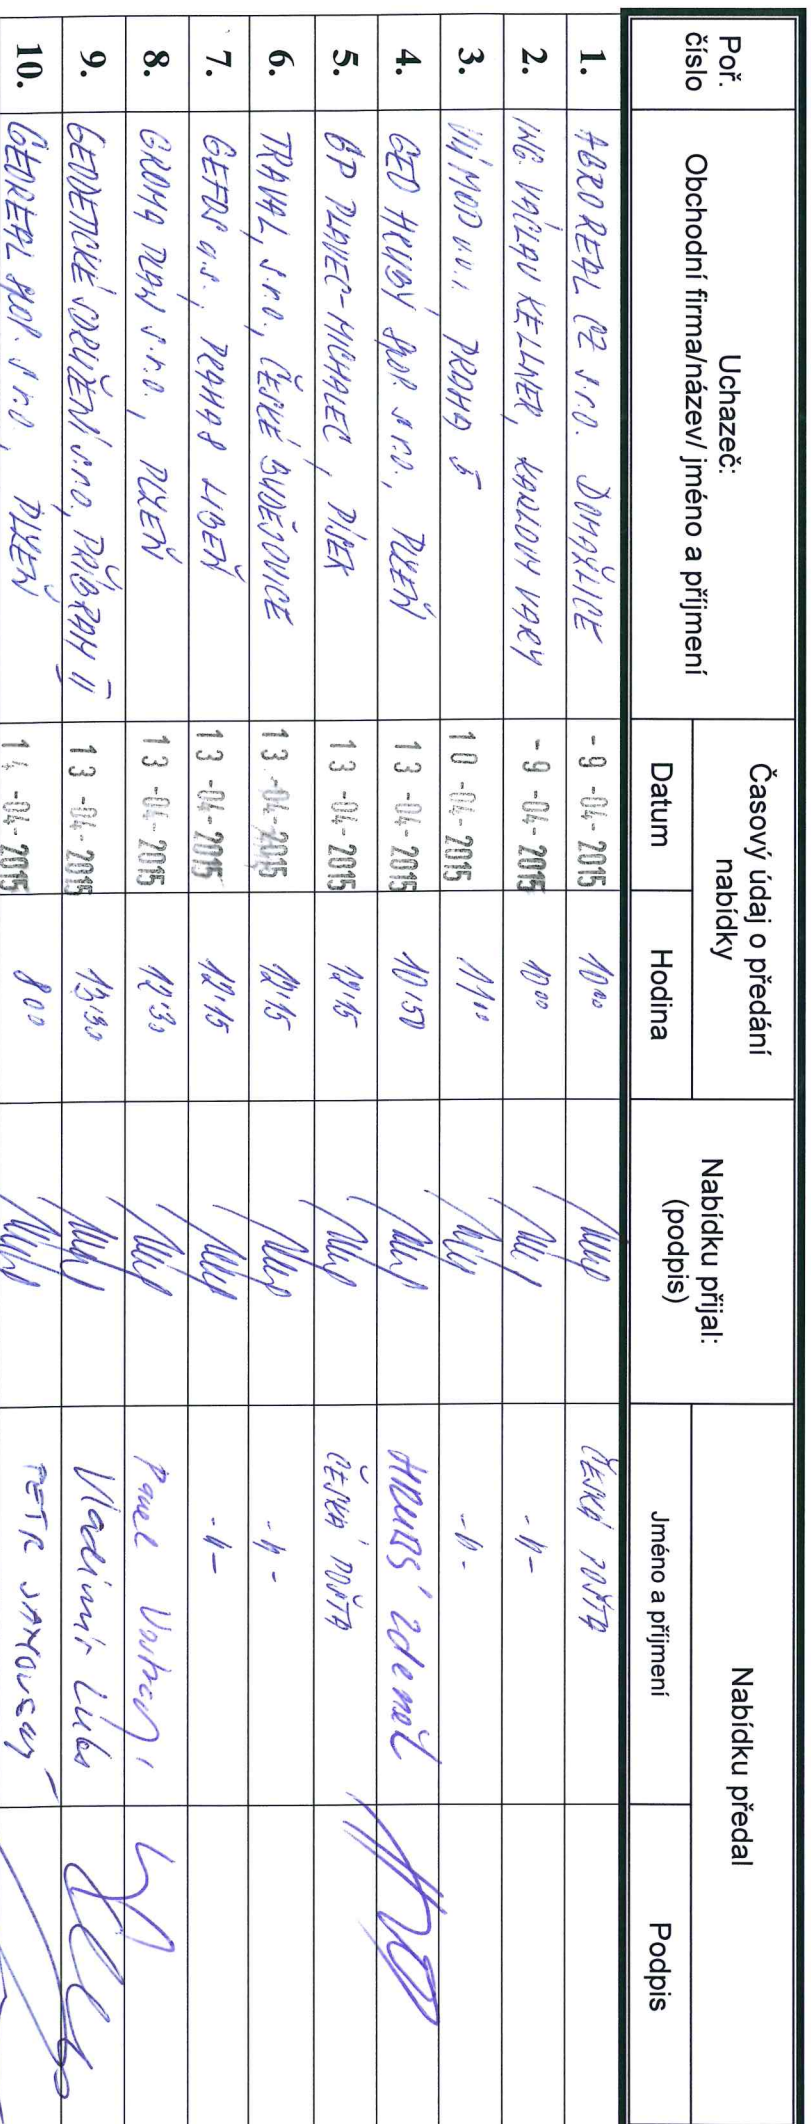 Poř. číslo | Uchazeč: Obchodní firma/název/ jméno a příjmení | Časový údaj o předání nabídky | Nabídku přijal: (podpis) | Nabídku předal
Datum | Hodina | Jméno a příjmení | Podpis
1. AGROREAL CZ s.r.o. DOMAŽLICE - 9 -04- 2015 10⁰⁰ ČESKÁ POŠTA
2. ING. VÁCLAV KELLNER, KARLOVY VARY - 9 -04- 2015 10⁰⁰ - 〃 -
3. VÚMOP v.v.i. PRAHA 5 10 -04- 2015 11⁰⁰ - 〃 -
4. GEO HRUBÝ spol. s r.o., PLZEŇ 13 -04- 2015 10:50 HRUBÝ Zdeněk
5. GP PLAVEC-MICHALEC, PÍSEK 13 -04- 2015 12:15 ČESKÁ POŠTA
6. TRAVAL, s.r.o., ČESKÉ BUDĚJOVICE 13 -04- 2015 12:15 - 〃 -
7. GEFOS a.s., PRAHA 8 LIBEŇ 13 -04- 2015 12:15 - 〃 -
8. GROMA PLAN s.r.o., PLZEŇ 13 -04- 2015 12:30 Pavel
9. GEODETICKÉ SDRUŽENÍ s.r.o., PŘÍBRAM II 13 -04- 2015 13:30 Vladimír
10. GEOREAL spol. s r.o., PLZEŇ 14 -04- 2015 8⁰⁰ PETR